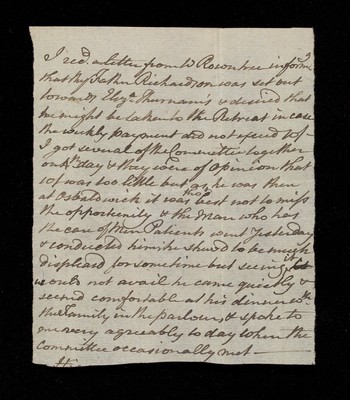 I recd. a letter from W Rowntree informg
that thy Father Richardson was set out
towards Elizth Thurnam's & desired that
he might be taken to the Retreat in case
the weekly payment did not exceed 10/-
I got several of the Committee together
on 4th day & they were of Opinion that
10/ was too little but as he was then
at Osbaldwick it was thot best not to miss
the opportunity & the Man who has
the care of Men Patients went Yesterday
& conducted him he shewd to be much
displeasd for sometime but seeing it
would not avail he came quietly &
seemd comfortable at his dinner wth
the Family in the parlour, & spoke to
me very agreeably to day when the
Committee occasionally met —